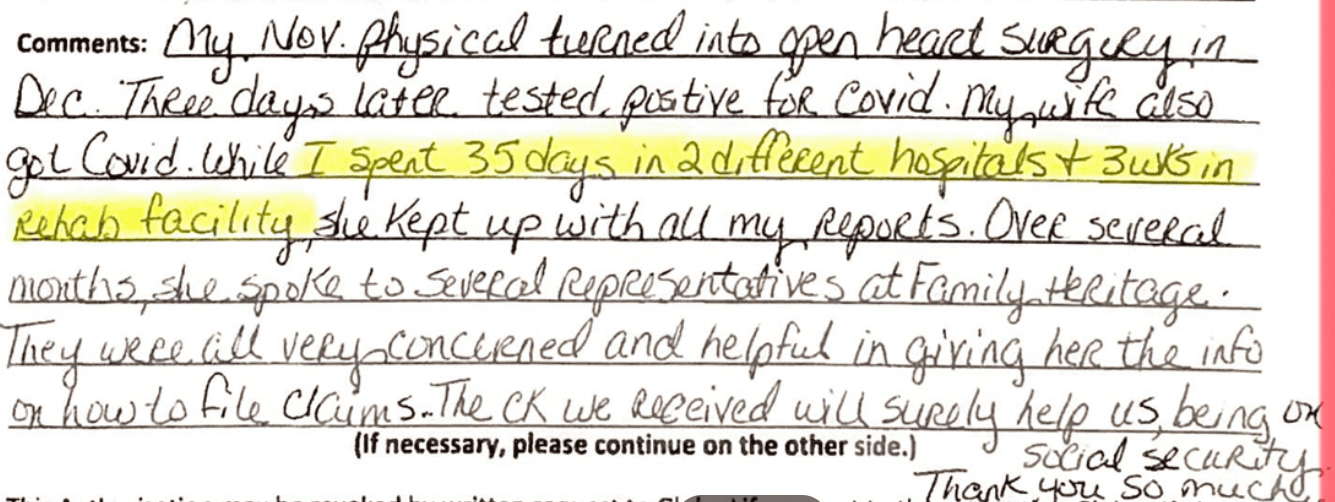 Comments: My Nov. physical turned into open heart surgery in
Dec. Three days later tested positive for Covid. My wife also
got Covid. While I spent 35 days in 2 different hospitals + 3 wks in
rehab facility, she kept up with all my reports. Over several
months, she spoke to several representatives at Family Heritage.
They were all very concerned and helpful in giving her the info
on how to file claims. The ck we received will surely help us, being on
(If necessary, please continue on the other side.)
social security.
Thank you so much!